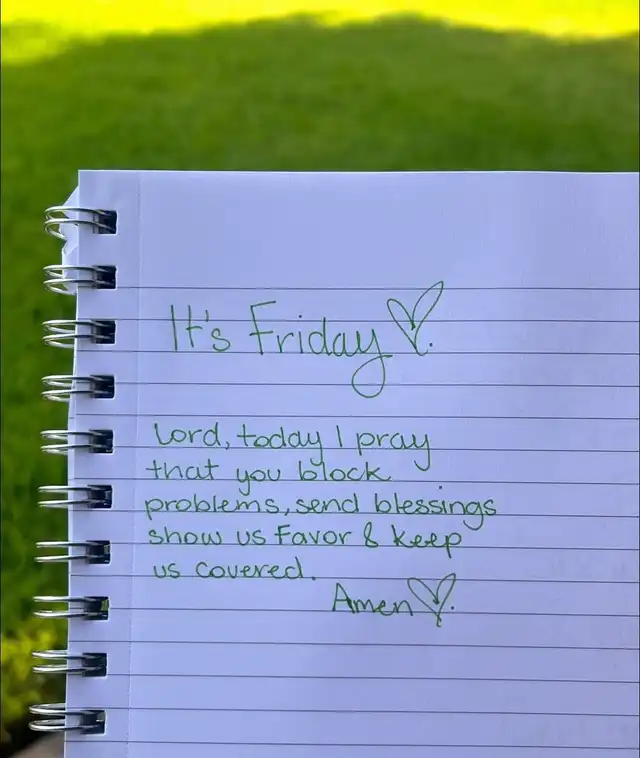 It's Friday ♡.
Lord, today I pray
that you block
problems, send blessings
show us Favor & keep
us covered.
Amen ♡.